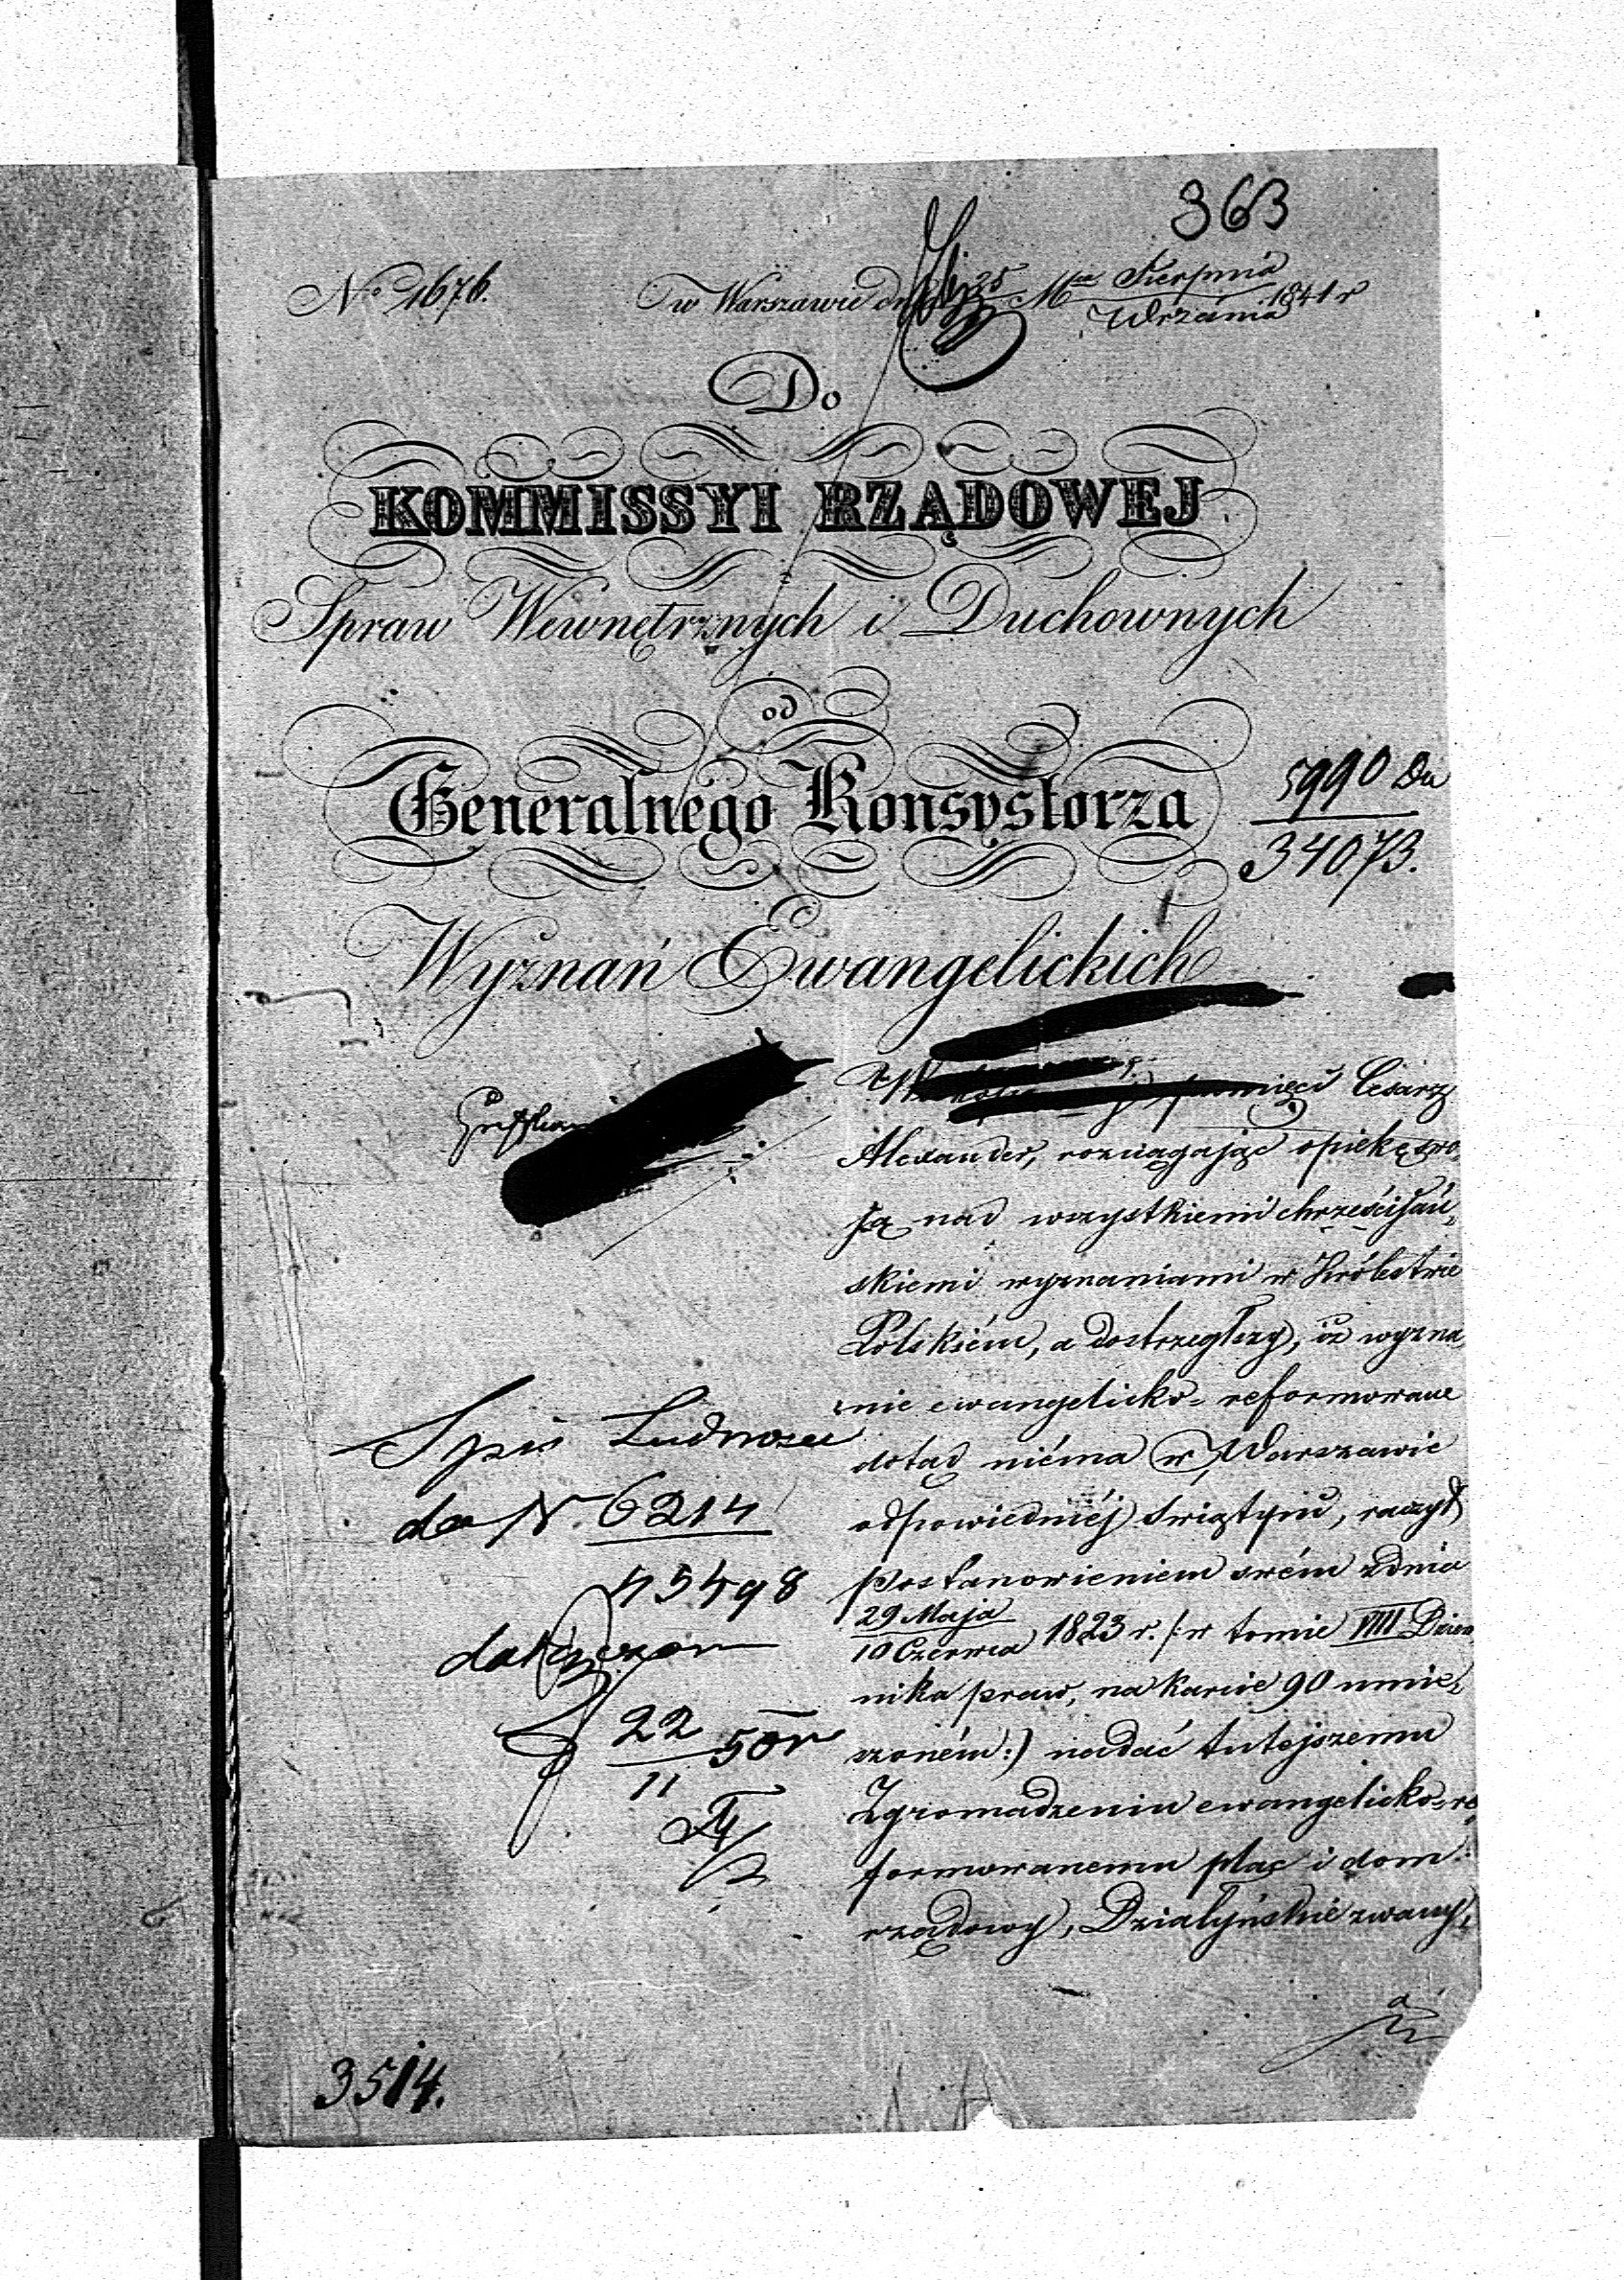 363
No 1676.
w Warszawie dnia 25 Mca Sierpnia
Września 1841 r
Do
KOMMISSYI RZĄDOWEJ
Spraw Wewnętrznych i Duchownych
od
Generalnego Konsystorza
5990
34073.
Wyznań Ewangelickich
pamięci Cesarz
Alexander, rozciągając opiekę swo
ją nad wszystkiemi chrześcijań„
skiemi wyznaniami w Królestwie
Polskiém, a dostrzegłszy, iż wyzna„
nie ewangelicko-reformowane
dotąd niéma w Warszawie
odpowiedniéj świątyni, raczył
postanowieniem swém z dnia
29 Maja
10 Czerwca 1823 r. /: w tomie VIII Dzien„
nika praw, na karcie 90 umie„
szoném :) nadać tutejszemu
Zgromadzeniu ewangelicko-re„
formowanemu plac i dom
rządowy, Działyńskie zwany,
Spis Ludnosci
do N. 6214
45498
dołączon
22
11 50 r
3514.